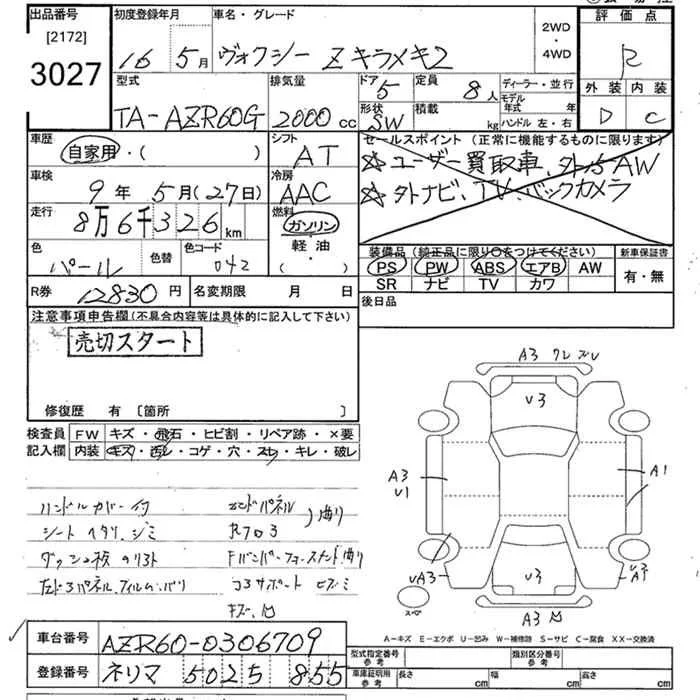 出品番号
[2172]
3027
初度登録年月
16 5月
車名・グレード
ヴォクシー Z キラメキ2
2WD
・
4WD
評価点
R
外装 内装
D C
型式
TA-AZR60G
排気量
2000 cc
ドア
5
定員
8人
ディーラー・並行
モデル年式 年
形状
SW
積載
kg
ハンドル 左・右
車歴
自家用・( )
シフト
AT
セールスポイント (正常に機能するものに限ります)
☆ユーザー買取車、外15AW
☆外ナビ、TV、バックカメラ
車検
9年5月(27日)
冷房
AAC
走行
8万6千326km
燃料
ガソリン
軽・油
・( )
色
パール
色替
色コード
042
装備品 (純正品に限り○をつけてください)
PS PW ABS エアB AW
SR ナビ TV カワ
新車保証書
有・無
R券
12830円
名変期限 月 日
後日品
注意事項申告欄(不具合内容等は具体的に記入して下さい)
売切スタート
修復歴 有 [箇所 ]
検査員
記入欄
FW キズ・飛石・ヒビ割・リペア跡・×要
内装 キズ・汚レ・コゲ・穴・スレ・キレ・破レ
ハンドルカバー付
シートヘタリ、シミ
A3
V3
A3
V1
A1
V3
A3
A-キズ E-エクボ U-凹み W-補修跡 S-サビ C-腐食 XX-交換済
車台番号
AZR60-0306709
登録番号
ネリマ 502 5 855
型式指定番号
参考
類別区分番号
参考
車庫証明用
参考
長さ cm
幅 cm
高さ cm